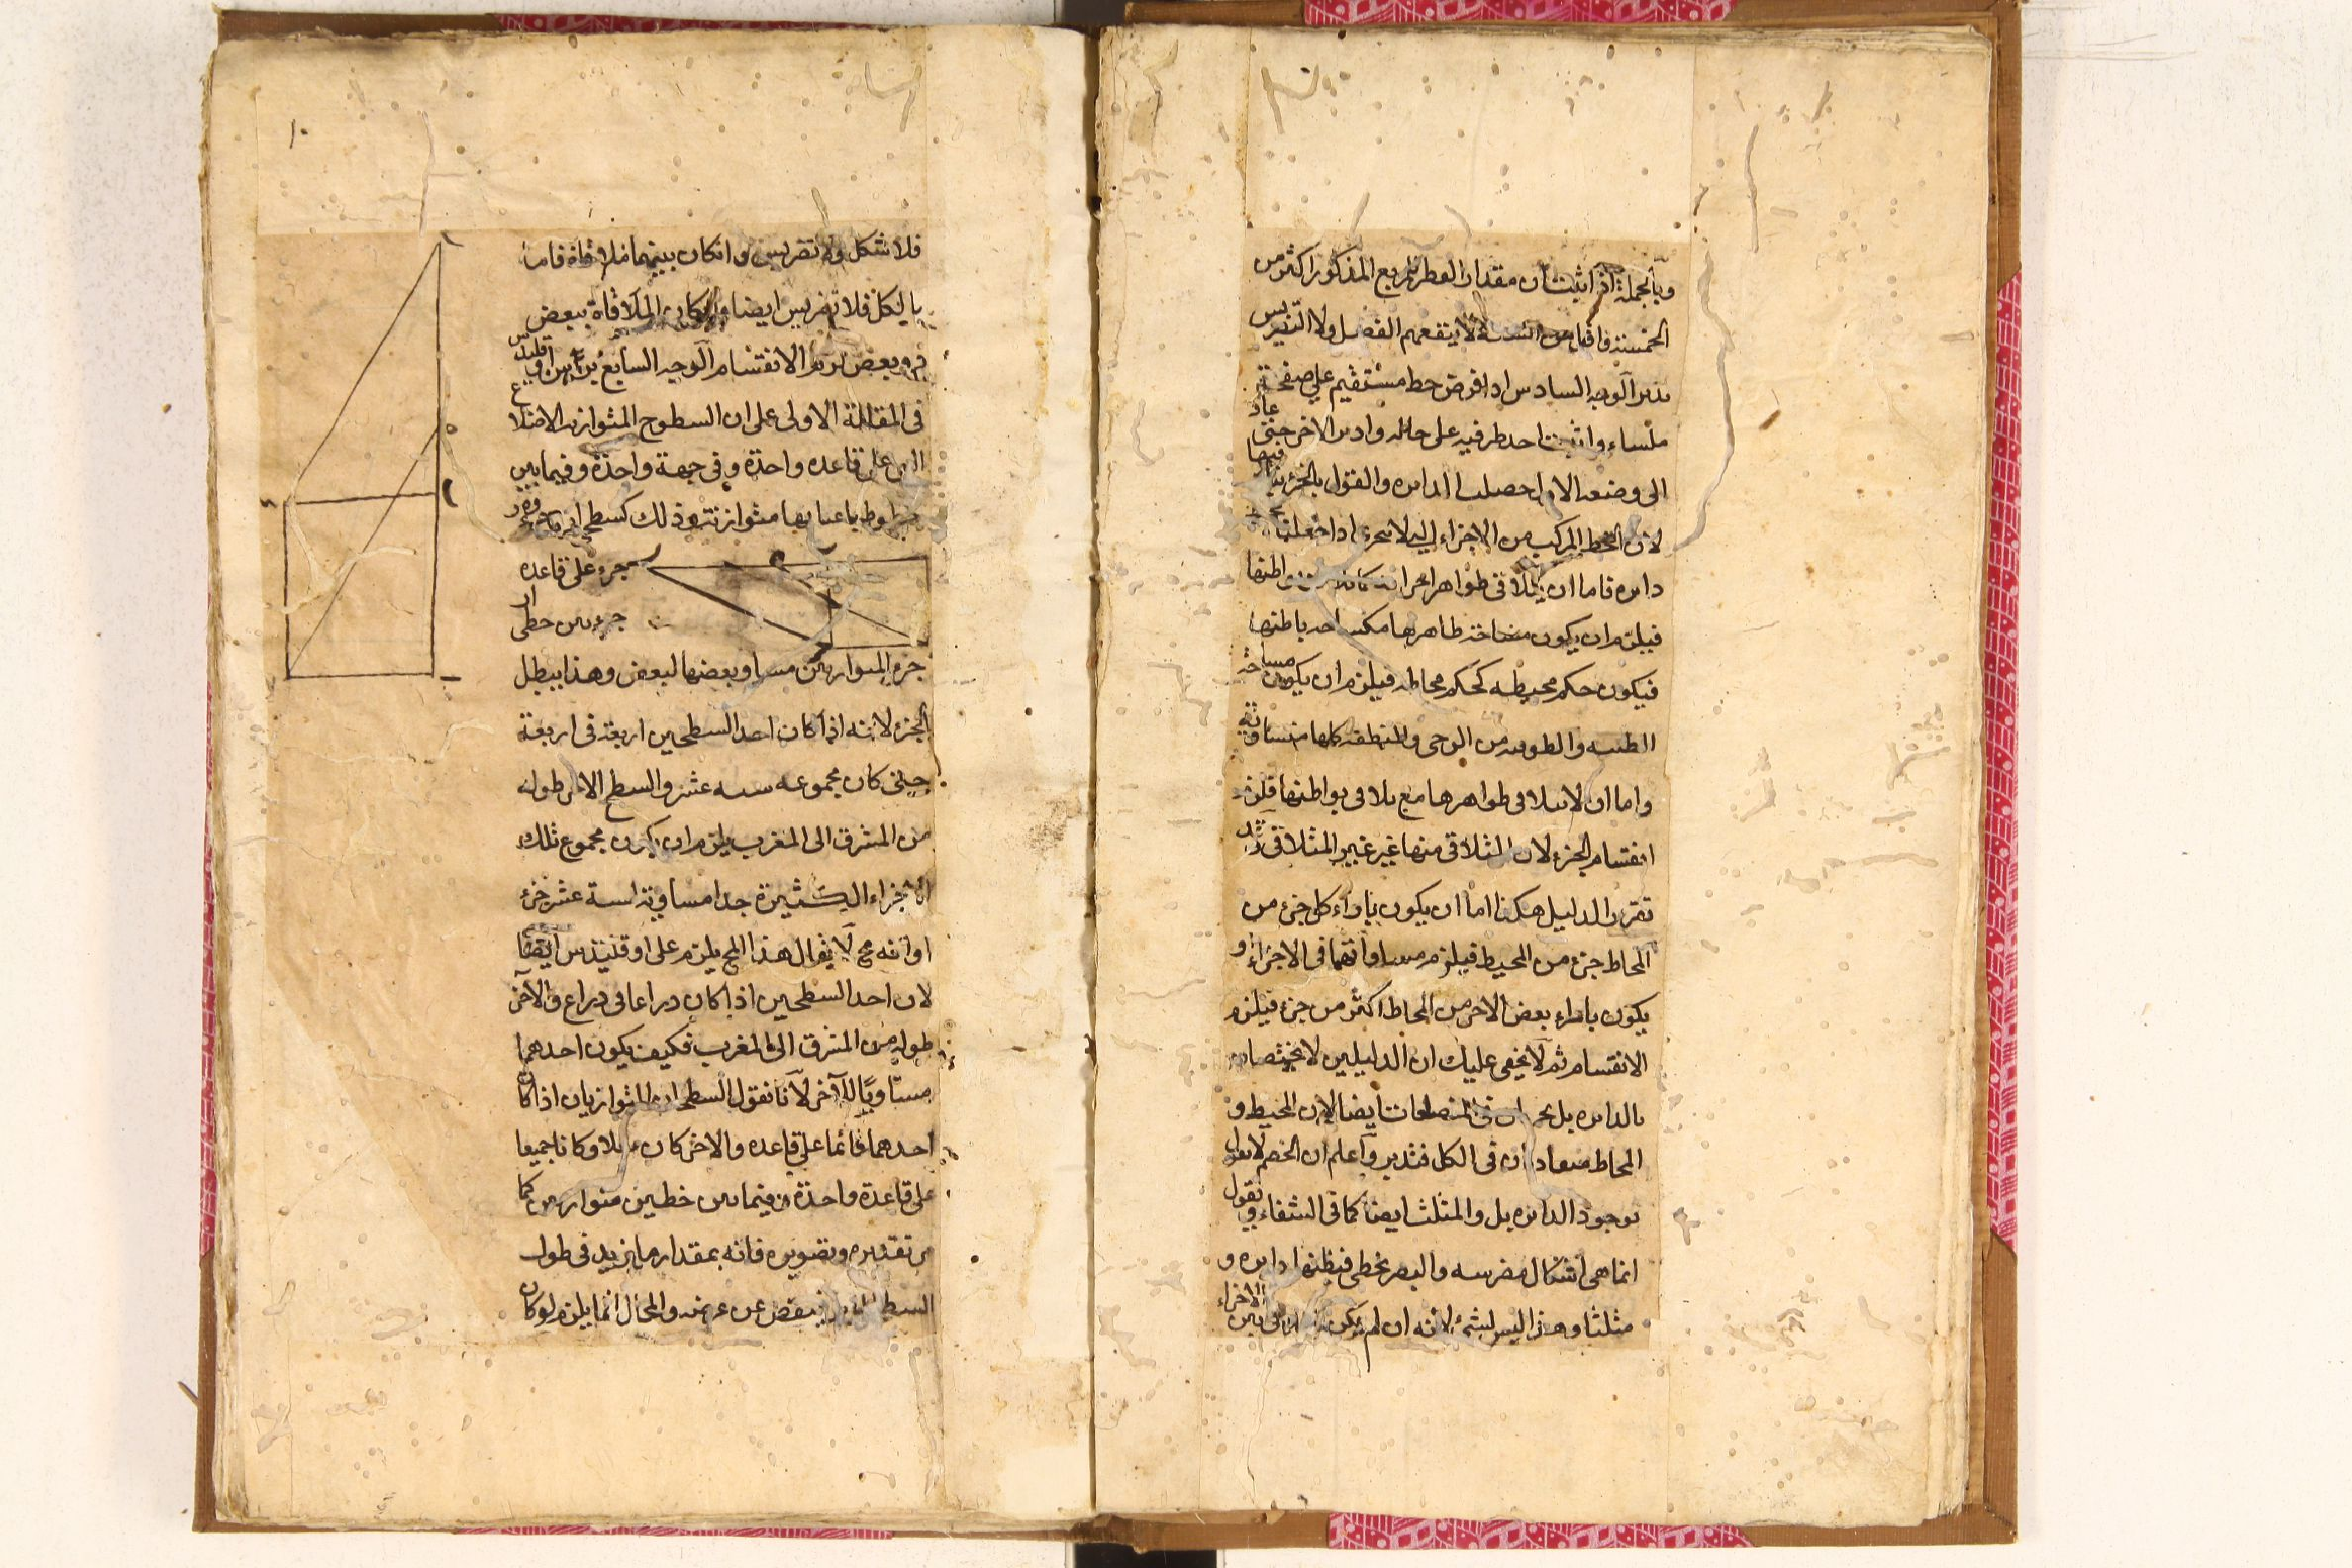 وبالجملة اذا ثبت ان مقدار القطر للمربع المذكور اكثر من
الخمسة واقل من الستة لا ينفعهم الفصل ولا التضريس
تدبر الوجه السادس اذا فرض خط مستقيم على صفحة
ملساء واثبت احد طرفيه على حاله وادير الاخر حتى عاد
الى وضعه الاول حصلت الدايره والقول بالجزء ينافيها
لان الخط المركب من الاجزاء التي لا تتجزء اذا جعلناه
دايره فاما ان يتلاقى ظواهر اجزائه كما تلاقى بواطنها
فيلزم ان يكون مساحة ظاهرها كمساحه باطنها
فيكون حكم محيطه كحكم محاطه فيلزم ان يكون مساحة
القطبيه والطوقيه من الرحى والمنطقه كلها متساوية
واما ان لا يتلاقى ظواهرها مع تلاقى بواطنها فلزم
انقسام الجزء لان المتلاقى منها غير غير المتلاقى
تقرير الدليل هكذا اما ان يكون بازاء كل جزء من
المحاط جزء من المحيط فيلزم مساواتهما فى الاجزاء او
يكون بازاء بعض الاجزء من المحاط اكثر من جزء فيلزم
الانقسام ثم لا يخفى عليك ان الدليلين لا يختصان
بالدايره بل يجريان فى المضلعات ايضا لان المحيط و
المحاط متعادلان فى الكل فتدبر واعلم ان الخصم لا يقول
بوجود الدايره بل والمثلث ايضا كما فى الشفاء ويقول
انما هى اشكال مضرسه والبصر يخطى فيظنها دايره و
مثلثا وهذا ليس بشئ لانه ان لم يكن بين الاجزاء
١٠
فلا شكل ولا تضريس وان كان بينهما ملاقاة فاما
بالكل فلا تضريس ايضا وان كان الملاقاة ببعض
دون بعض لزم الانقسام الوجه السابع برهن اوقليدس
فى المقالة الاولى على ان السطوح المتوازيه الاضلاع
التى على قاعده واحدة وفى جهة واحدة وفيما بين
خطوط باعيانها متوازنة وذلك كسطح
جزء على قاعده
جزء بين خطى ار
جزء المتوازيين مساو بعضها لبعض وهذا يبطل
الجزء لانه اذا كان احد السطحين اربعة فى اربعة
حتى كان مجموعه سته عشر والسطح الاخر طوله
من المشرق الى المغرب يلزم ان يكون مجموع تلك
الاجزاء الكثيرة جدا مساوية لستة عشر جزء
او انه مح لا يقال هذا المح يلزم على اوقليدس ايضا
لان احد السطحين اذا كان ذراعا فى ذراع والآخر
طوله من المشرق الى المغرب فكيف يكون احدهما
مساويا للآخر لانا نقول السطحان المتوازيان اذا كان
احدهما قائما على قاعده والاخر كان مايلا وكانا جميعا
على قاعدة واحدة وفيما بين خطين متوازيين كما
مر تقديره وتصويره فانه بمقدار ما يزيد فى طول
السطح ينقص عن عرضه والمحال انما يلزم لو كان